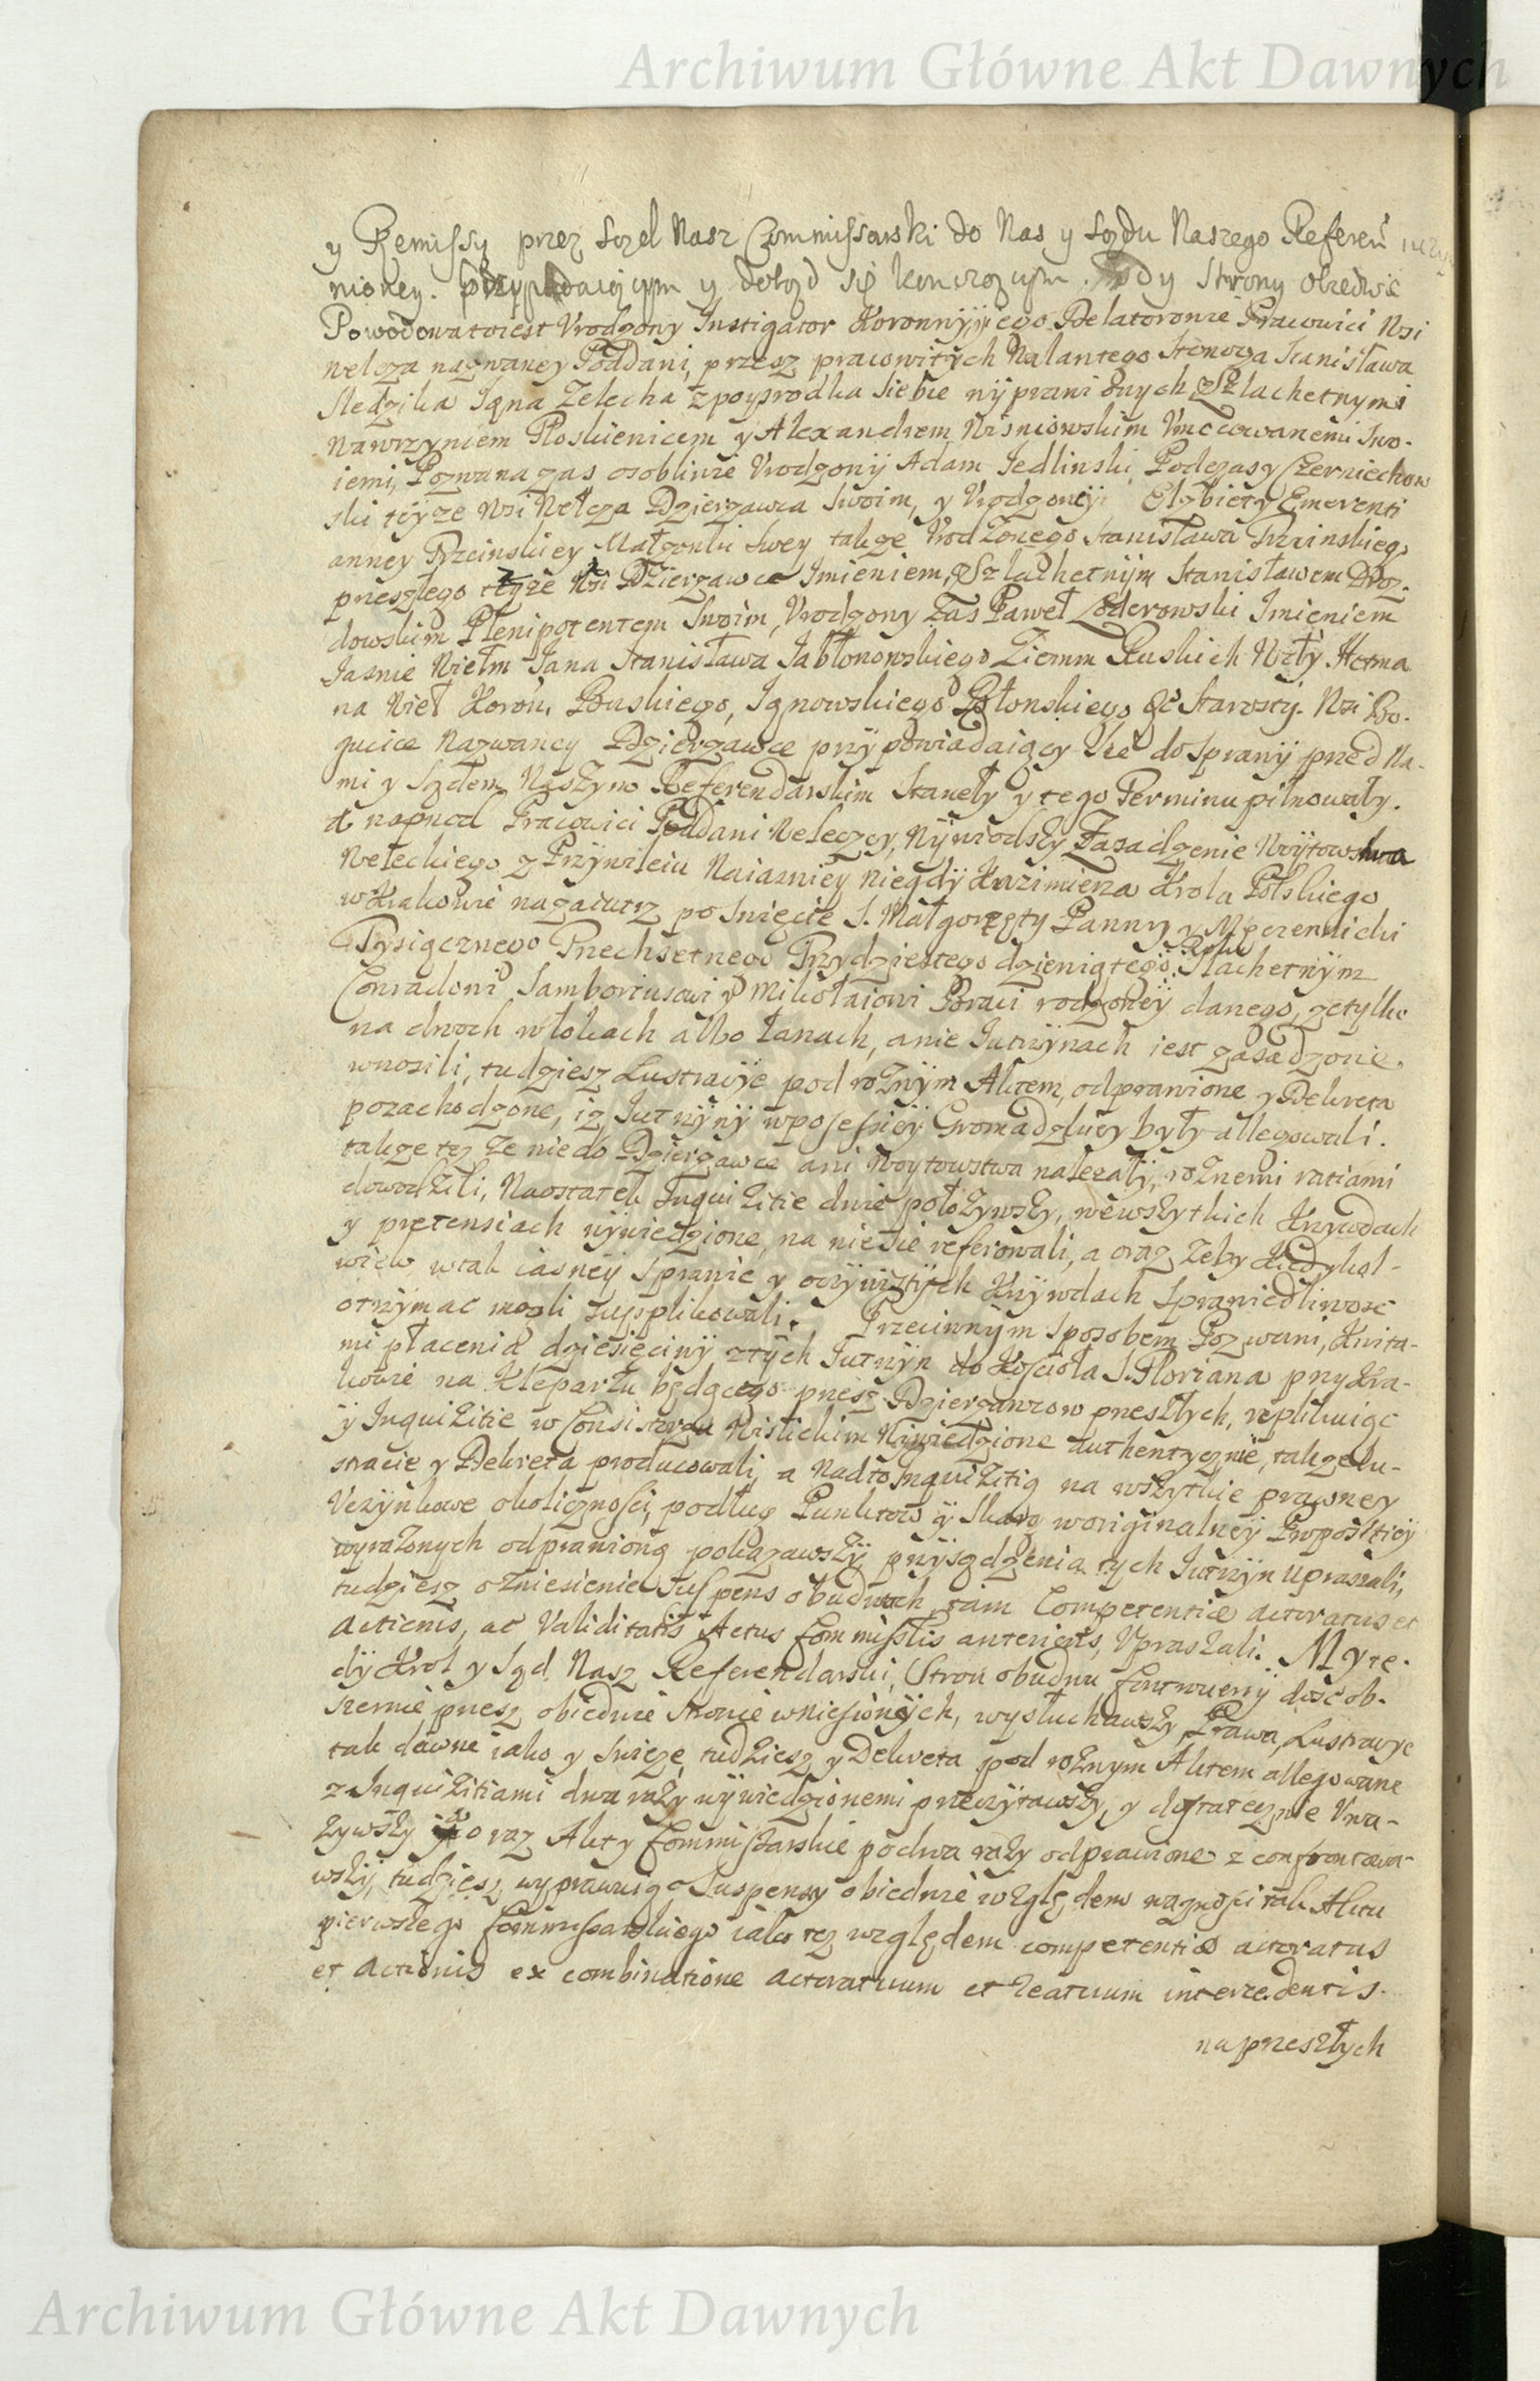 Archiwum Główne Akt Dawnych
y Remissy przez Sąd Nasz Commissarski do Nas y Sądu Naszego Referen
nioney. Przypadaiącym y dotąd się konczącym. Tedy Strony obiedwie
Powodowa to iest Vrodzony Instigator Koronny y iego Delatorowie Pracowici Wsi
Welcza nazwaney Poddani, przesz pracowitych Walantego Stanisława
Sledzika Jana Zelecha z poysrodka siebie wyprawionych Szlachetnymi
Wawrzyniem Ploskienicem y Alexandrem Wisniowskim Vmocowanemi Swo-
iemi, Pozwana zas osobliwie Vrodzony Adam Jedlinski Podczaszy Czerniechow
ski teyze Wsi Welcza Dzierzawca Swoim, y Vrodzoney Elzbiety Emerenti
anney Małzonki Swey takze Vrodzonego Stanisława
preszlego teyze Wsi Dzierzawce Jmieniem, Szlachetnym Stanisławem Droz-
dowskim Plenipotentem Swoim, Vrodzony Zas Paweł Jmieniem
Jasnie Wielm Jana Stanisława Jabłonowskiego Ziemm Ruskich Wdy Hetma
na Wiel Koron, Buskiego, &c Starosty. Wsi Bo-
gucice Nazwaney Dzierzawce przypowiadaiący sie do sprawy przed Na-
mi y Sądem Naszym Referendarskim Stanęły y tego Terminu pilnowały.
A naprzod Pracowici Poddani Weleczcy, Wywiodszy Zasadzenie Woytowstwa
Weleckiego z Przywileiu Naiasniey niegdy Kazimierza Krola Polskiego
w Krakowie nazaiutrz po Swięcie S. Małgorzęty Panny y Męczennicki
Roku
Tysiącznego Trzechsetnego Trzydziestego dziewiątego. Slachetnym
Conradowi Samboriusowi y Mikołaiowi Braci rodzoney danego, ze tylko
na dwoch włokach albo Łanach, a nie Jutrzynach iest zasadzone.
wnosili, tudziesz Lustracye pod roznym Aktem, odprawione y Dekreta
pozachodzone, iz Jutrzyny w posessiey Gromadzkiey były allegowali.
takze tez ze nie do Dzierzawce ani Woytowstwa nalezały, roznemi ratiami
dowodzili, Naostatek Inquizitie dwie połozywszy, we wszytkich Krzywdach
y pretensiach wywiedzione, na nie sie referowali, a oraz zeby kiedykol-
wiek w tak iasney sprawie y oczywistych Krzywdach Sprawiedliwosc
otrzymac mogli supplikowali. Przeciwnym sposobem Pozwani, Kwita-
mi płacenia dziesięciny z tych Jutrzyn do Koscioła S. Floriana przy Kra-
kowie na Kleparzu będącego przesz Dzierzawcow preszłych, replikuiąc
y Inquizitie w Consistorzu Wislickim Wywiedzione authentycznie, takze Lu-
stracie y Dekreta producowali, a Nadto Inquizitią na wszytkie prawney
Vczynkowe okolicznosci, podług Punktow y Skarg w originalney Propositiey
wyrazonych odprawioną pokazawszy, przysądzenia tych Jutrzyn upraszali,
tudziesz zniesienie Suspens obudwoch, tam Competentiæ actoratus et
actionis, ac Validitatis Actus Commissis anterioris, Vpraszali. My te-
dy Krol y Sąd Nasz Referendarski, Stron obudwu Controwersy dosc ob-
szernie przesz obiedwie Stronie wniesionych, wysłuchawszy, Prawa, Lustracye
tak dawne iako y swieze, tudziesz y Dekreta pod roznym Aktem allegowane
z Inquizitiami dwa razy wywiedzionemi przeczytawszy, y dostatecznie Vwa-
zywszy oraz Akty Commissarskie po dwa razy odprawione z confrontowa-
wszy, tudziesz wyprawuiąc Suspensy obiedwie względem waznosci tak Aktu
pierwszego Commissarskiego iako tez względem competentiæ actoratus
et actionis ex combinatione actoratuum et reatuum intercedentis.
na preszłych
Archiwum Główne Akt Dawnych